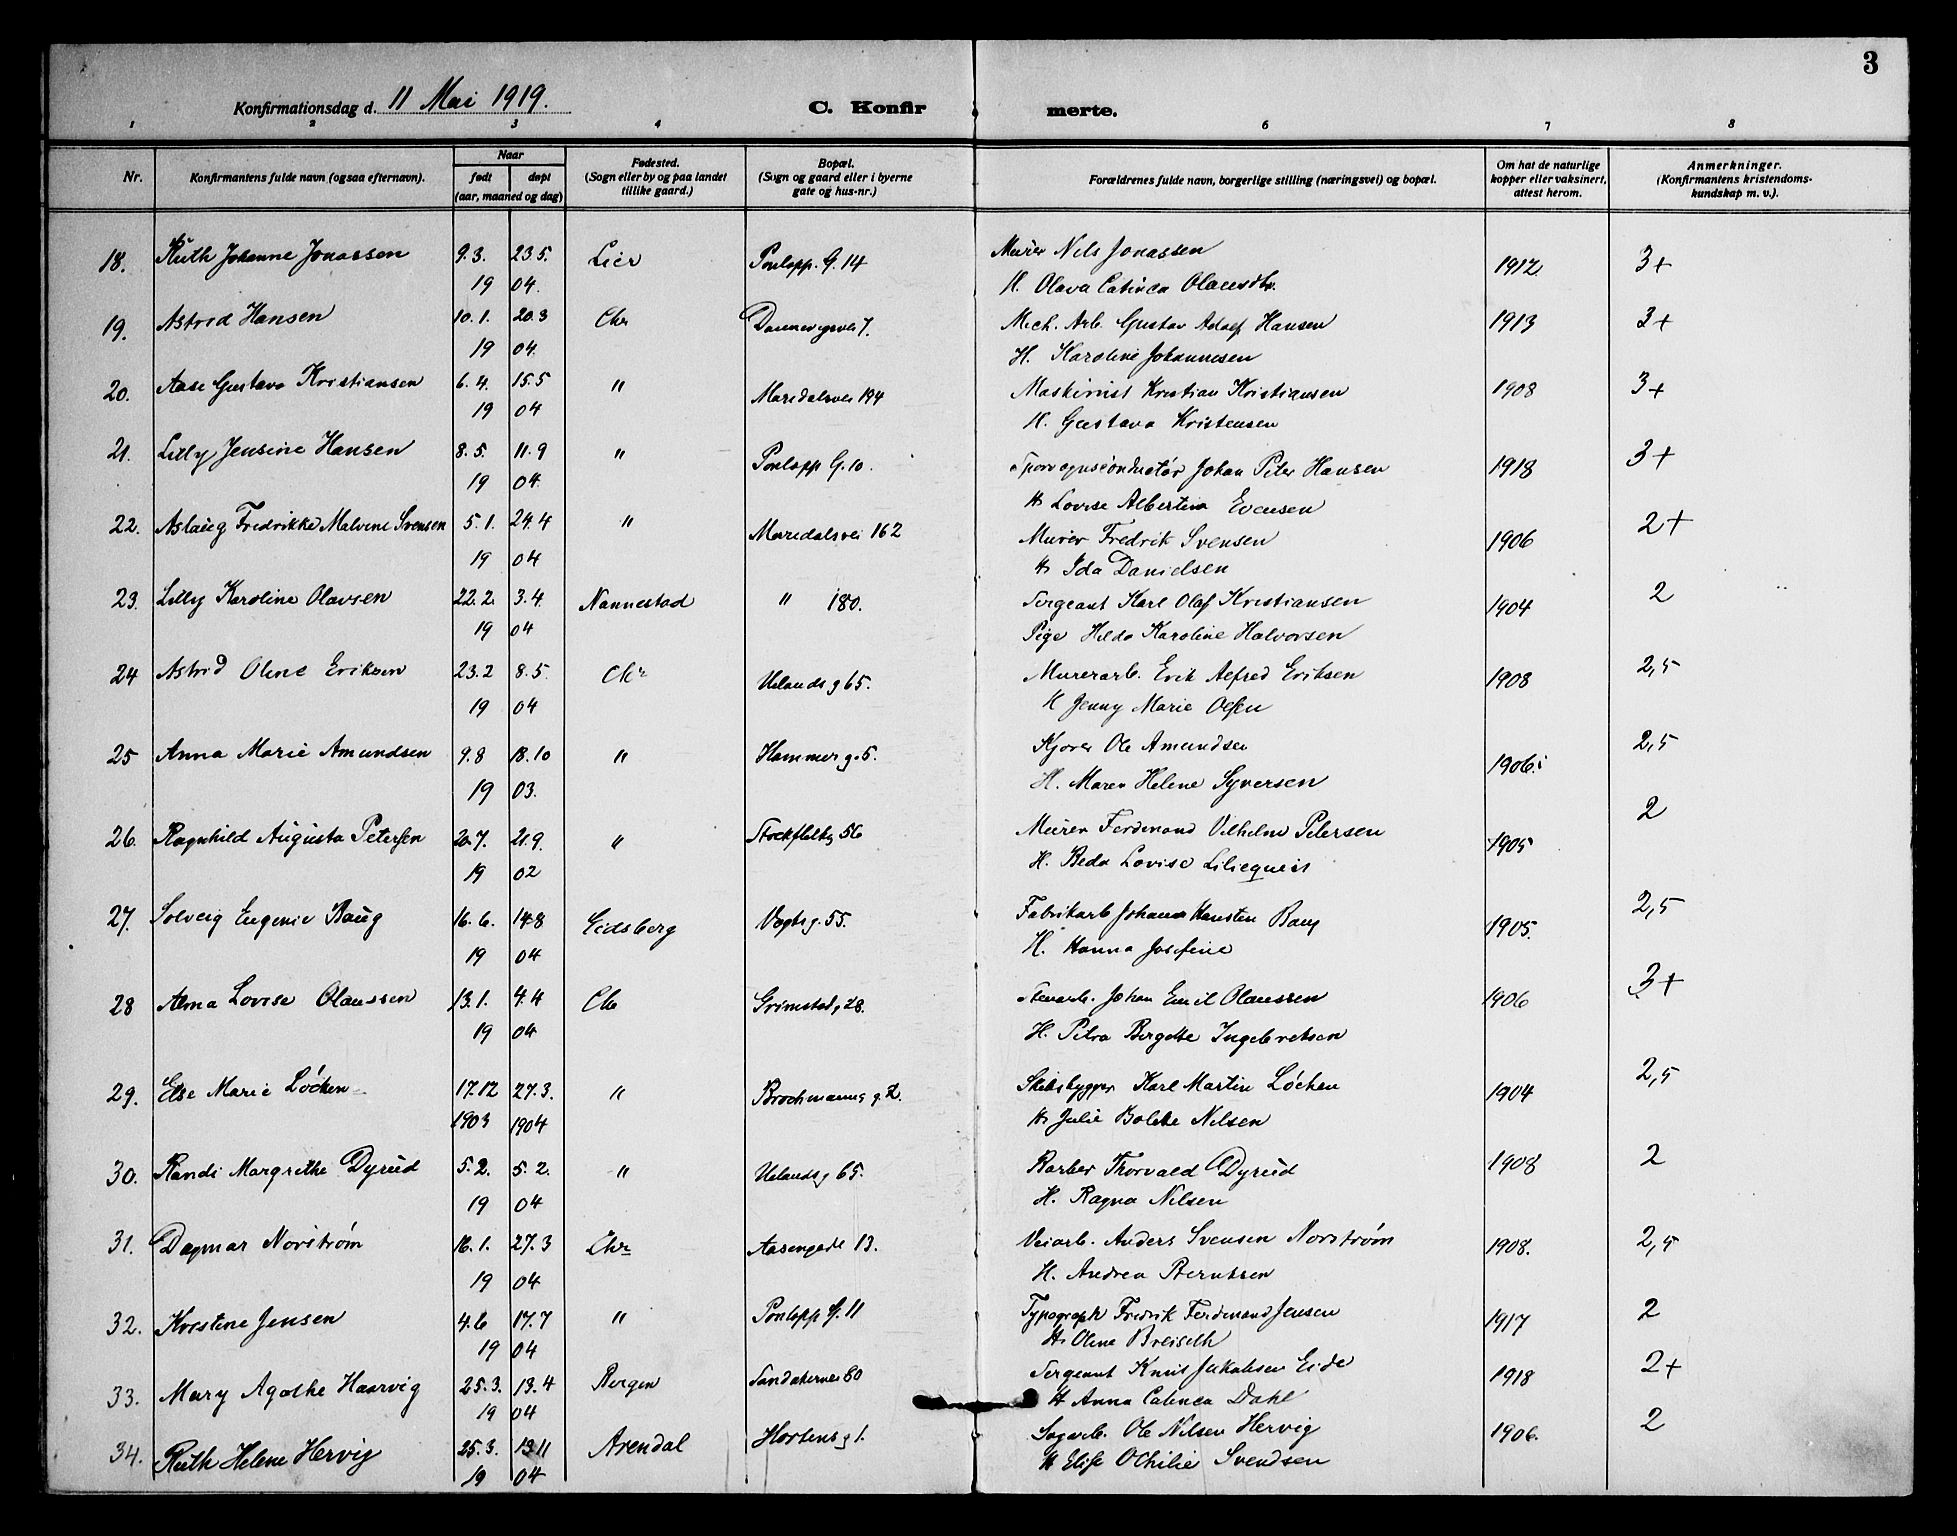 3
Konfirmationsdag d. 11 Mai 1919.
C. Konfirmerte.
1 2 3 4 6 7 8
Nr.
Konfirmantens fulde navn (ogsaa efternavn).
Naar
født døpt
(aar, maaned og dag)
Fødested.
(Sogn eller by og paa landet
tillike gaard.)
Bopæl.
(Sogn og gaard eller i byerne
gate og hus-nr.)
Forældrenes fulde navn, borgerlige stilling (næringsvei) og bopæl.
Om hat de naturlige
kopper eller vaksinert,
attest herom.
Anmerkninger.
(Konfirmantens kristendoms-
kundskap m. v.).
18. Ruth Johanne Jonassen 9.3. 23.5. Lier G. 14 Murer Nils Jonassen 1912 3+
19 04. H. Olava Catinca
19. Astrid Hansen 10.1. 20.3 Chr 7. Mek. Arb. Gustav Adolf Hansen 1913 3+
19 04. H. Karoline Johannesen
20. Aase Gustava Kristiansen 6.4. 15.5 " Maridalsvei 194 Maskinist Kristian Kristiansen 1908 3+
19 04 H. Gustava Kristensen
21. Lilly Jensine Hansen 8.5. 11.9 " G. 10. Sporvognsconductør Johan Peter Hansen 1918 3+
19 04. H Lovise Albertine Evensen
22. Aslaug Fredrikke Malvine Svensen 5.1. 24.4 " Maridalsvei 162 Murer Fredrik Svensen 1906 2+
19 04 H. Ida Danielsen
23. Lilly Karoline Olavsen 22.2. 3.4. Nannestad " 180. Sergeant Karl Olaf Kristiansen 1904 2
19 04 Pige Hilda Karoline Halvorsen
24 Astrid Oline Eriksen 23.2 8.5. Chr Uelands g 65. Murerarb. Erik Alfred Eriksen 1908 2,5
19 04 H Jenny Marie Olsen
25 Anna Marie Amundsen 9.8 18.10 " Hammer g. 5. Kjører Ole Amundsen 1906. 2,5
19 03. H. Maren Helene Syversen
26. Ragnhild Augusta Petersen 20.7. 21.9. " 56 Murer Ferdinand Vilhelm Petersen 1905 2
19 02 H. Beda Lovise Liliequist
27. Solveig Eugenie Baug 16.6. 14.8 Eidsberg Vogts g. 55. Fabrikarb Johan Baug 1905. 2,5
19 04 H. Hanna Josefine
28 Alma Lovise Olaussen 13.1. 4.4 Chr Grimstad g 28. Johan Emil Olaussen 1906 3+
19 04 H. Petra Bergitte Ingebretsen
29. Else Marie Löchen 17.12 27.3. " Brochmanns g. 2. Skibsbygger Karl Martin Löchen 1904 2,5
1903 1904 H. Julie Bolette Nilsen
30. Randi Margrethe Dyrud 5.2. 5.2. " Uelands g 65. Barber Thorvald Dyrud 1908 2
19 04 H. Ragna Nilsen
31. Dagmar Norström 16.1. 27.3 Chr Aasengade 13. Veiarb. Anders Svensen Norström 1908. 2,5
19 04 H. Andrea Berntsen
32. Kristine Jensen 4.6 17.7 " G. 11 Typograph Fredrik Ferdinand Jensen 1917 2
19 04 H. Oline Breiseth
33. Mary Agathe Haarvig 25.3. 13.4 Bergen Sandakervei 60 Sergeant Knut Jakobsen Eide 1918 2+
19 04 H Anna Catinca Dahl
34. Ruth Helene Hervig 25.3. 13.11 Arendal Hortens g 1. Sagarb. Ole Nilsen Hervig 1906. 2
19 04 H Elise Othilie Svendsen